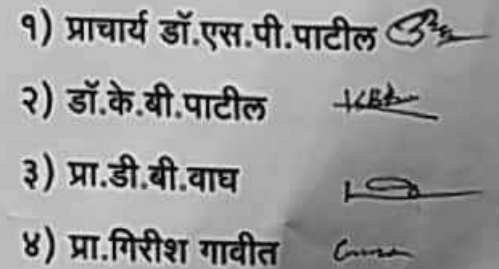 १) प्राचार्य डॉ.एस.पी.पाटील
२) डॉ.के.बी.पाटील
३) प्रा.डी.बी.वाघ
४) प्रा.गिरीश गावीत